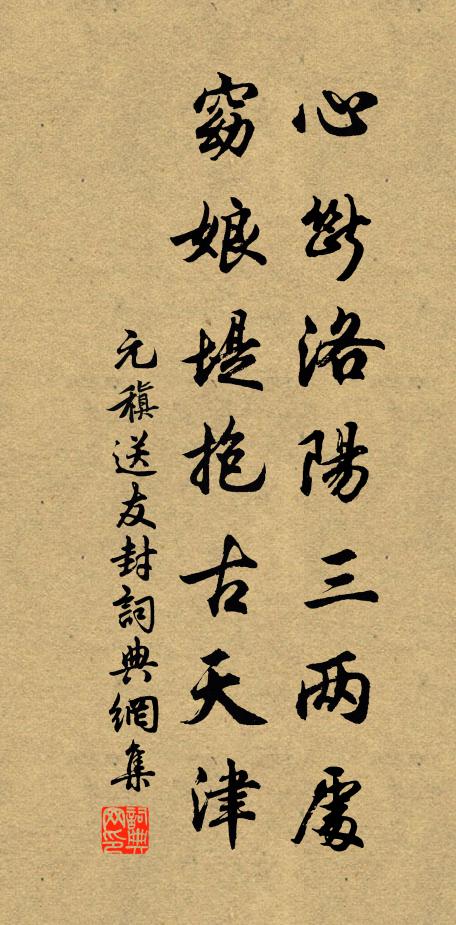 心斷洛陽三两處
窈娘堤抱古天津
元稹送友封詞典網集
詞典網印